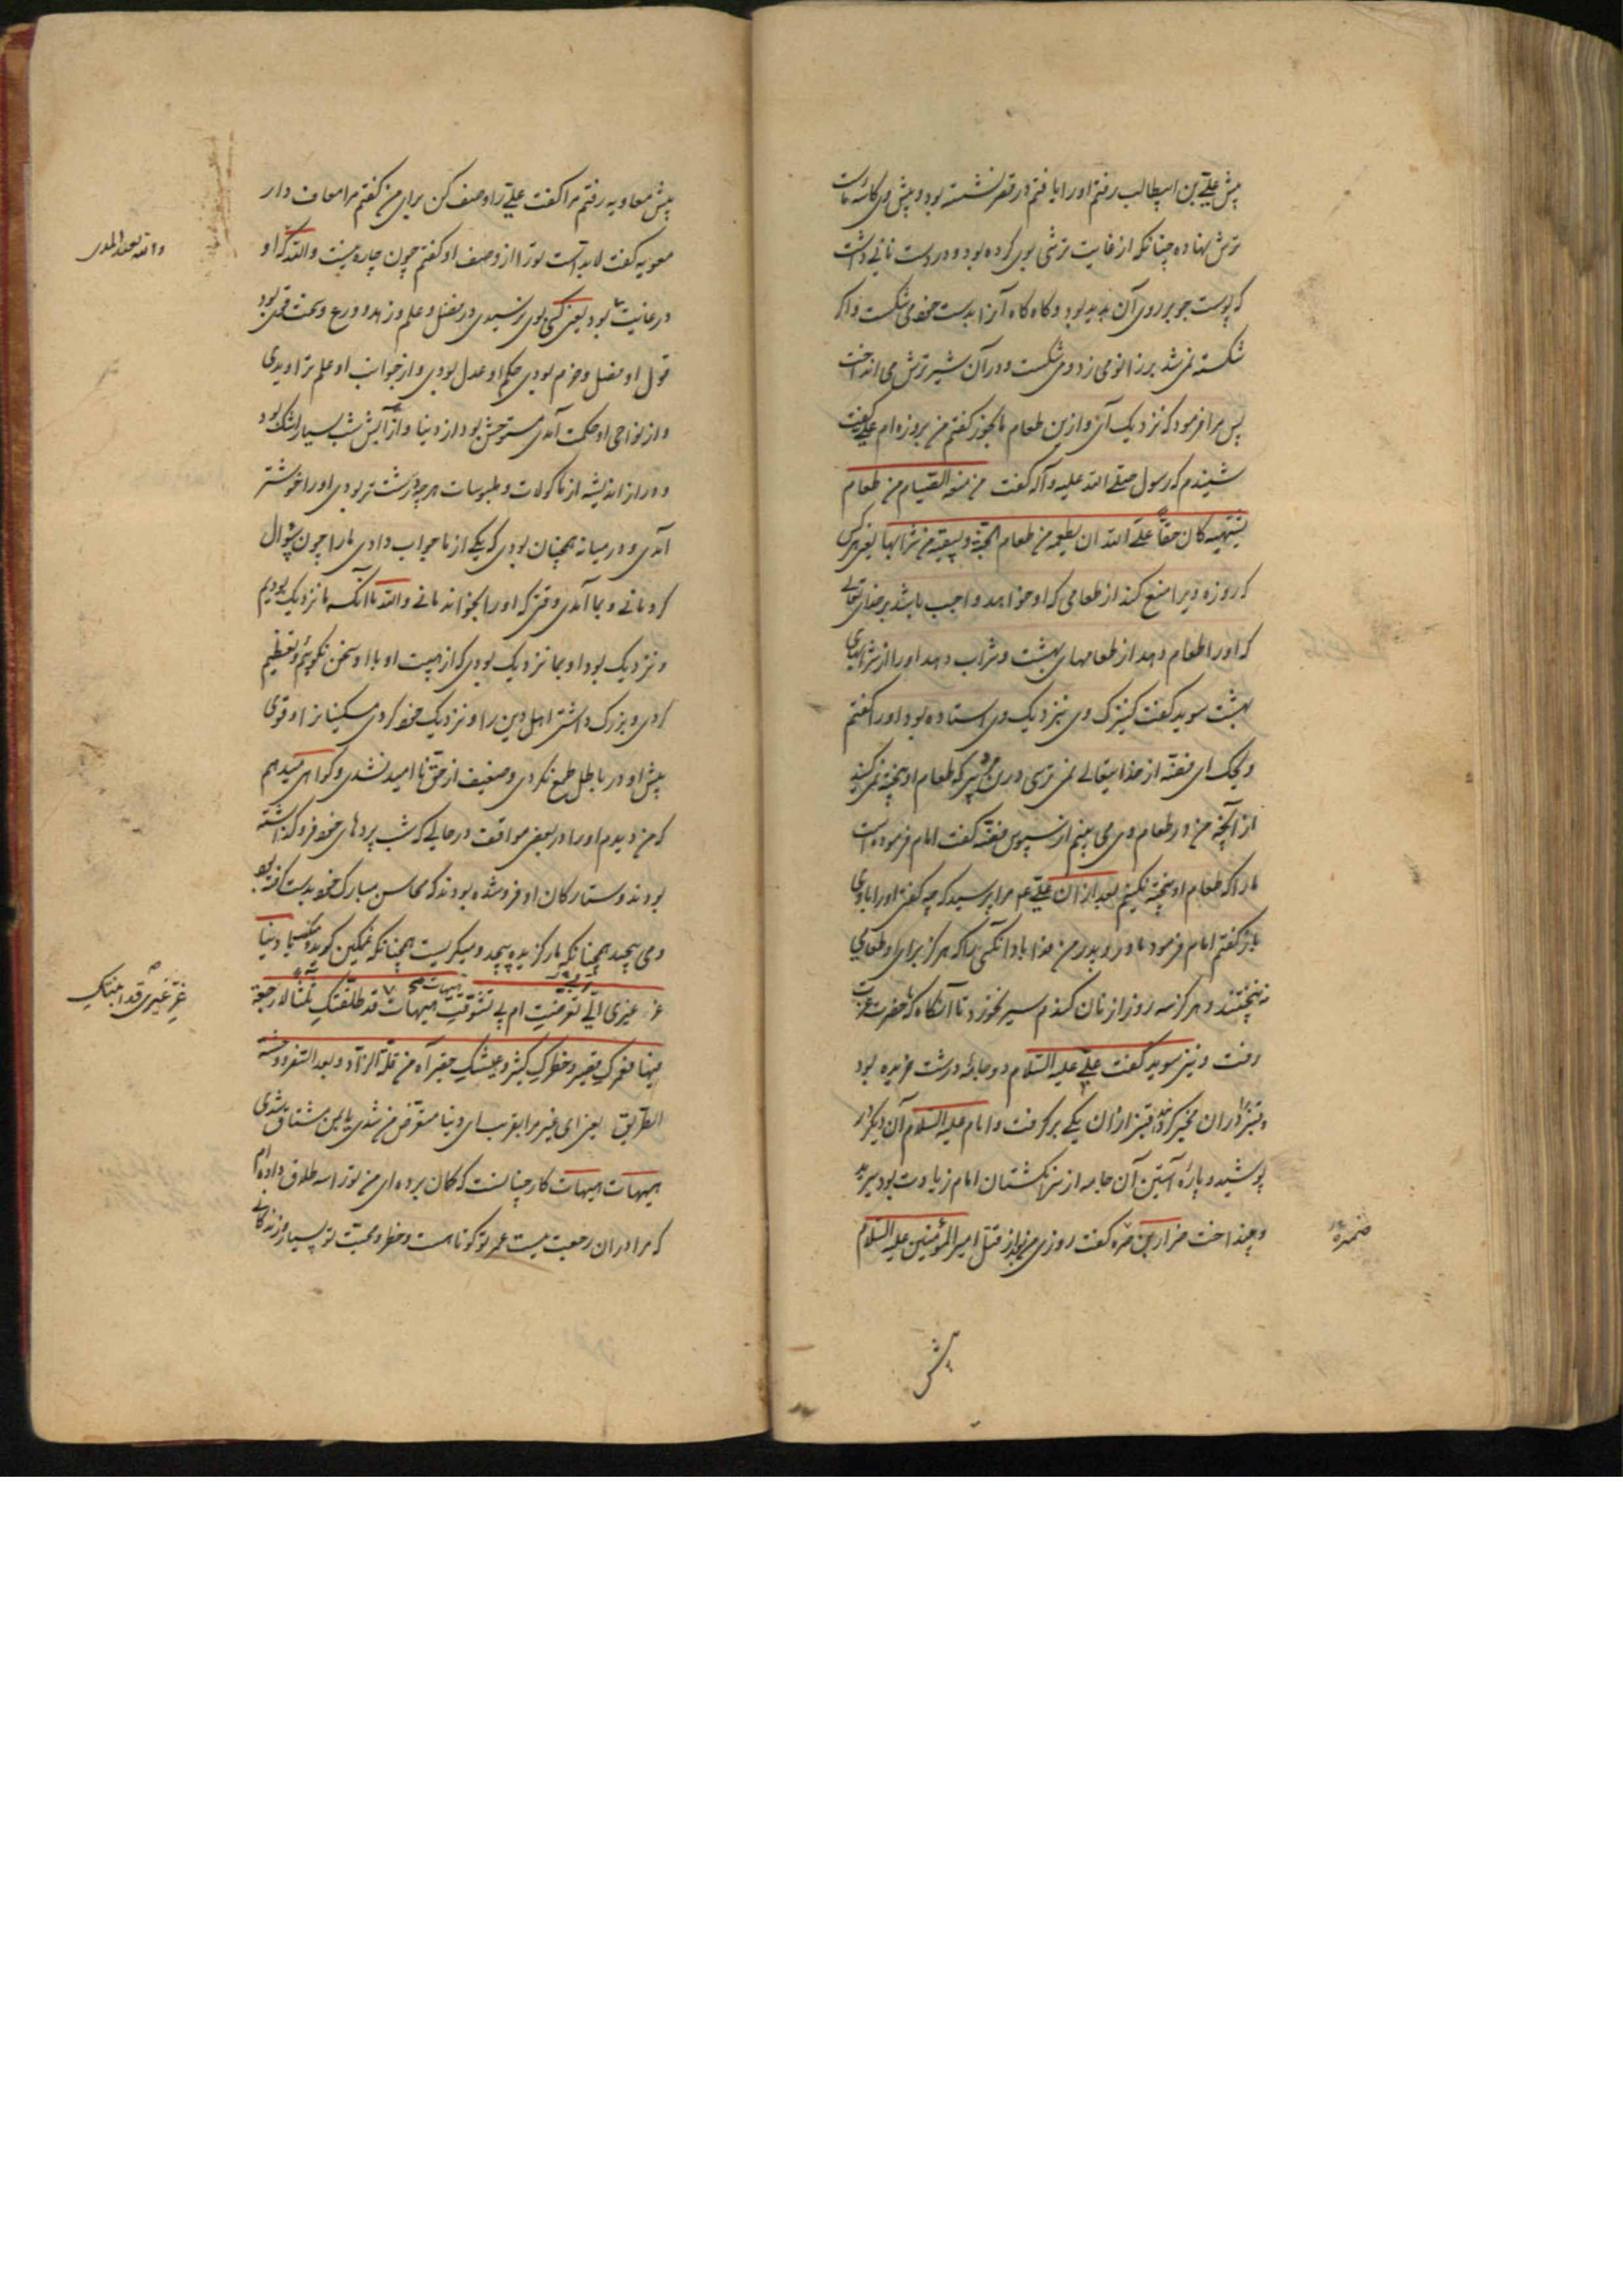 پیش علی بن ابیطالب رفتم او را یافتم در قصر نشسته بود و پیش وی کاسه ماست
ترش نهاده چنانکه از غایت ترشی بوی کرده بود و در دست نانی داشت
که پوست جو بر روی آن پدید بود و گاه گاه آنرا بدست خود می شکست و اگر
شکسته نمی شد بر زانو می زد و می شکست و در آن شیر ترش می انداخت
پس مرا فرمود که نزدیک آی و ازین طعام ما بخور گفتم من بروزه ام علی گفت
شنیدم که رسول صلی الله علیه و آله گفت من منعه الصیام من طعام
یشتهیه کان حقاً علی الله ان یطعمه من طعام الجنة و یسقیه من شرابها یعنی هر کس
که روزه ویرا منع کند از طعامی که او خواهد واجب باشد بر خدای تعالی
که او را طعام دهد از طعامهای بهشت و شراب دهد او را از شرابهای
بهشت سوید گفت کنیزک وی نزدیک وی استاده بود او را گفتم
ویحک ای فضه از خدایتعالی نمی ترسی درین پیر که طعام او پخته نمی کنید
از آنچه من در طعام وی می بینم از سپوس فضه گفت امام فرموده است
ما را که طعام او پخته نکنیم بعد از آن علی ع م مرا پرسید که چه گفتی او را با وی
باز گفتم امام فرمود مادر و پدر من فدا باد آنکسی را که هرگز برای او طعامی
نه پختند و هرگز سه روز از نان گندم سیر نخورد تا آنگاه که با حضرت عزت
رفت و نیز سوید گفت علی علیه السلام دو جامه درشت خریده بود
و قنبر را در آن مخیر کرد قنبر از آن یکی بر گرفت و امام علیه السلام آن دیگر در
پوشید و پاره آستین آن جامه از سر انگشتان امام زیادت بود ببرید
و بینداخت ضرار بن ضمره گفت روزی من بعد از قتل امیر المؤمنین علیه السلام
ضمره
پیش
پیش معاویه رفتم مرا گفت علی را وصف کن برای من گفتم مرا معاف دار
معویه گفت لابد است تو را از وصف او گفتم چون چاره نیست والله که او
در غایت بود یعنی کسی بوی نرسیدی در فضل و علم و زهد و ورع و سخت قوی بود
قول او فصل و جزم بودی حکم او عدل بودی و از جوانب او علم تراویدی
و از نواحی او حکمت آمدی مستوحش بود از دنیا و آرایش شب بسیار اشک بود
و دراز اندیشه از ماکولات و ملبوسات هر چه درشت تر بودی او را خوشتر
آمدی و در میانه همچنان بودی که یکی از ما جواب دادی ما را چون سؤال
کردمانی و بما آمدی وقتی که او را بخواندمانی والله با آنکه ما نزدیک بودیم
و نزدیک بود او بما نزدیک بودی که از هیبت او با او سخن نگوئیم و تعظیم
کردی و بزرگ داشتی اهل دین را و نزدیک خود کردی مسکینانرا و قوی
پیش او در باطل طمع نکردی و ضعیف از حق ناامید نشدی و گواهی میدهم
که من دیدم او را در بعضی مواقف در حالی که شب پردهای خود فرو گذاشته
بودند و ستارگان او فرو شده بودند که محاسن مبارک خود بدست گرفته بود
و می پیچید همچنانکه مار گزیده پیچد و میگریست همچنانکه غمگین گرید و میگفت یا دنیا
غری غیری الی تعرضت ام الی تشوقت هیهات قد طلقتک ثلثاً لا رجعة
فیها فعمرک قصیر و خطرک کثیر و عیشک حقیر آه من قلة الزاد و بعد السفر و وحشة
الطریق یعنی ای غیر مرا بفریب ای دنیا متعرض من شدی یا بمن مشتاق شدی
هیهات هیهات کار چنانست که گمان برده ای من تو را سه طلاق داده ام
که مرا در آن رجعت نیست عمر تو کوتاه است و خطر و محبت تو بسیار و زندگانی
والله بعید المدی
غری غیری قد ابنتک